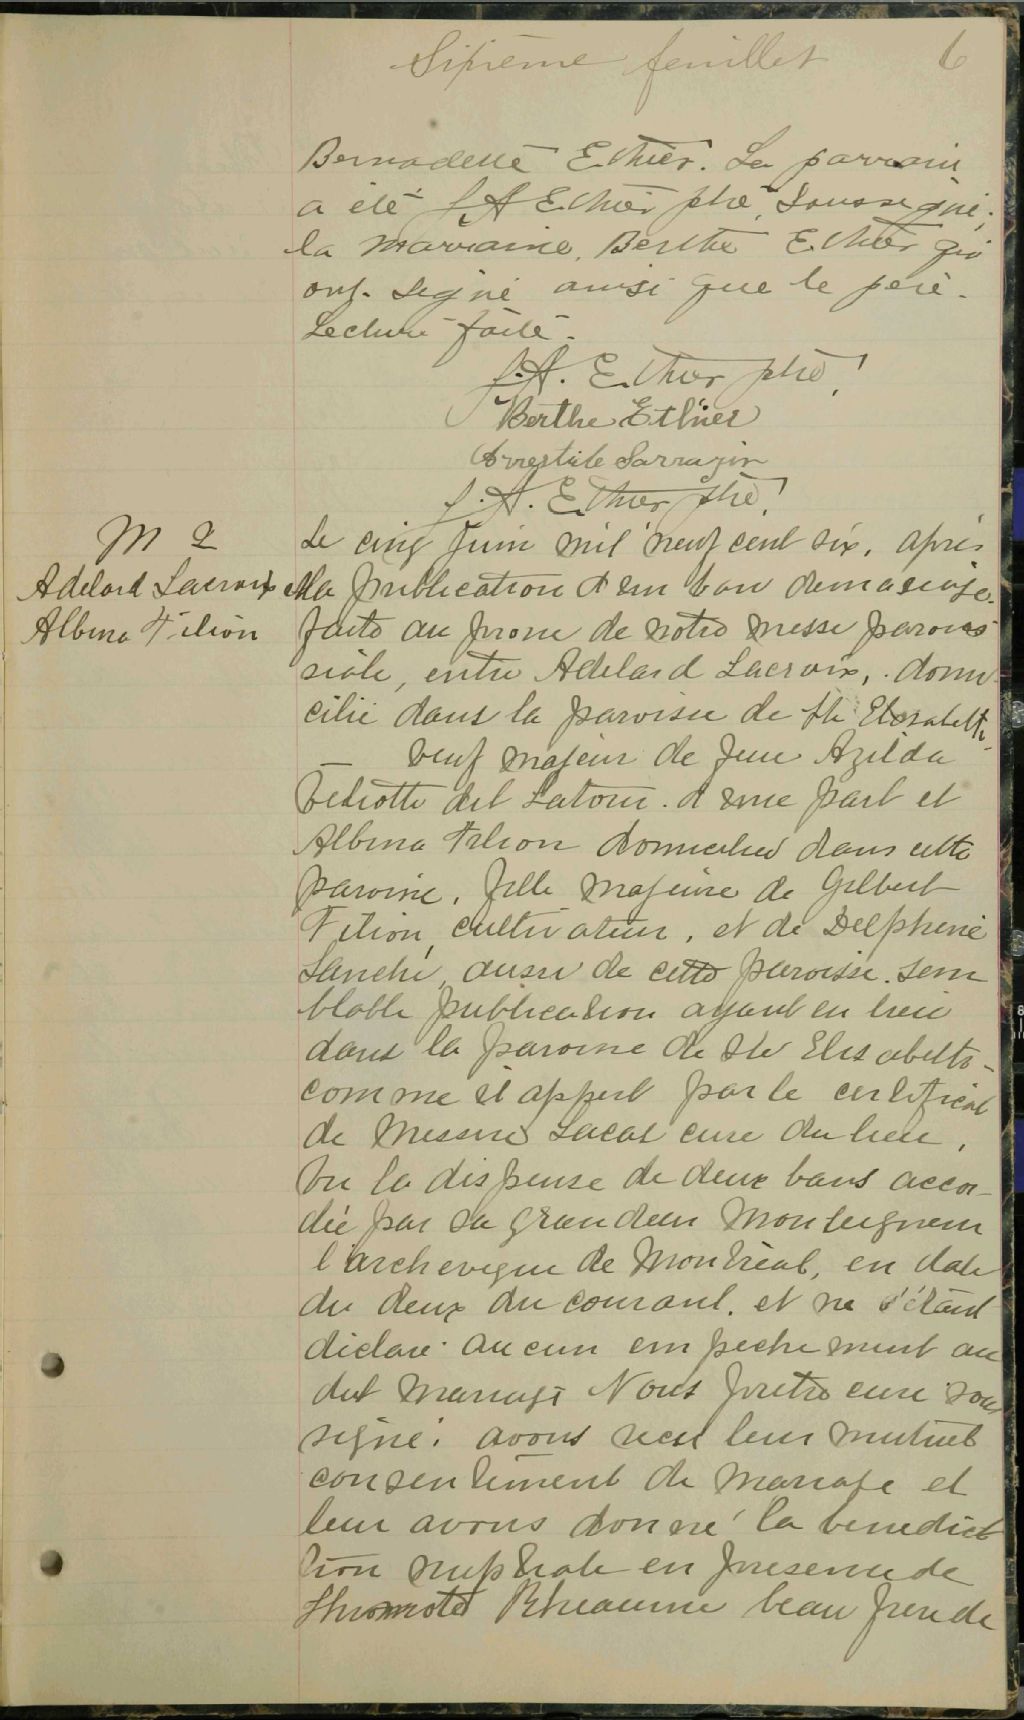 Sixième feuillet 6
Bernadette Ethier. Le parrain
a été J.A Ethier ptre, Soussigné,
la marraine, Berthe Ethier qui
ont signé ainsi que le père.
Lecture faite.
J.A. Ethier ptre
Berthe Ethier
Sarrazin
J.A. Ethier ptre
M 2
Adelard Lacroix et
Albina Filion
Le cinq Juin mil neuf cent six, après
la publication d'un ban de mariage
faite au prone de notre messe parois
siale, entre Adelard Lacroix, domi
cilié dans la paroisse de Ste Elisabeth,
veuf majeur de feue Azilda
dit Latour. d'une part et
Albina Filion domiciliée dans cette
paroisse, fille majeure de Gilbert
Filion, cultivateur, et de Delphine
Lanché, aussi de cette paroisse. sem
blable publication ayant eu lieu
dans la paroisse de Ste Elisabeth
comme il appert par le certificat
de Messire Lacas curé du lieu,
Vu la dispense de deux bans accor
dée par sa grandeur Monseigneur
l'archeveque de Montréal, en date
du deux du courant. et ne s'étant
déclaré aucun empechement au
dit mariage Nous prêtre curé sous
signé, avons reçu leur mutuel
consentement de mariage et
leur avons donné la benedict
tion nuptiale en presence de
Rheaume beau frere de